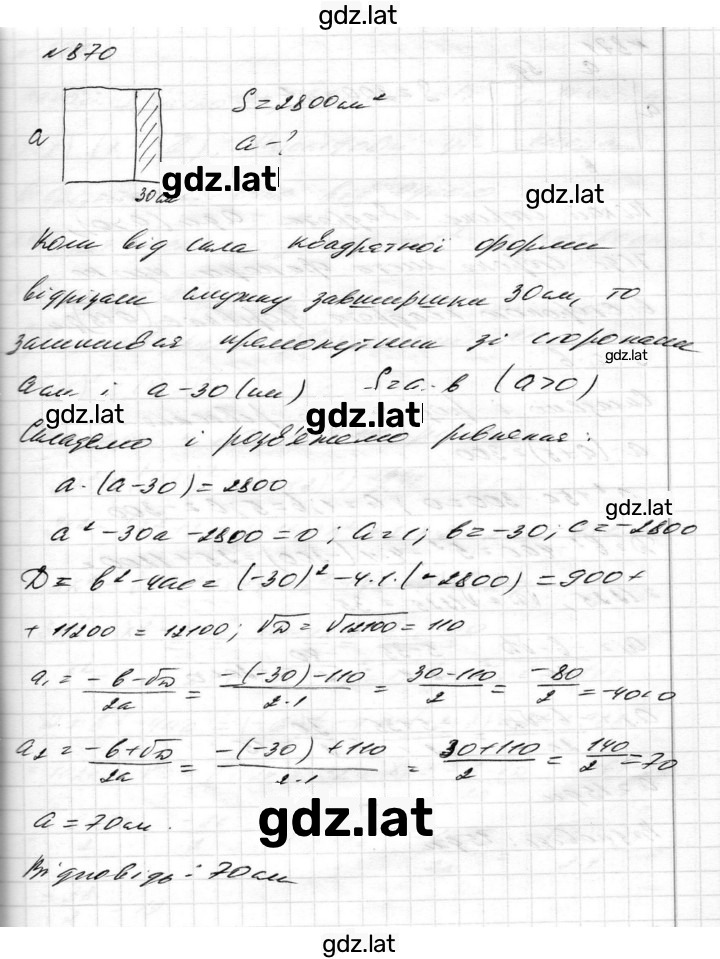 gdz.lat
№870
a
30см
S = 2800см²
a - ?
gdz.lat
gdz.lat
Коли від скла квадратної форми
відрізали смужку завширшки 30см, то
залишився прямокутник зі сторонами
gdz.lat
a см і a - 30 (см) S = a · b (a > 0)
gdz.lat
gdz.lat
Складемо і розв'яжемо рівняння:
a · (a - 30) = 2800
gdz.lat
a² - 30a - 2800 = 0; a = 1; b = -30; c = -2800
D = b² - 4ac = (-30)² - 4·1·(-2800) = 900 +
+ 11200 = 12100; √D = √12100 = 110
a₁ = (-b-√D)/2a = (-(-30)-110)/2·1 = (30-110)/2 = -80/2 = -40 < 0
a₂ = (-b+√D)/2a = (-(-30)+110)/2·1 = (30+110)/2 = 140/2 = 70
a = 70см.
gdz.lat
Відповідь: 70см
gdz.lat